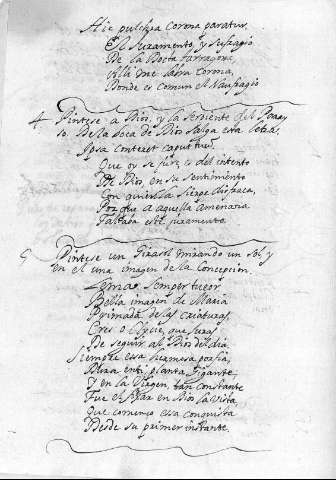 Hic pulchra Corona paratur.
El Juramento, y Sufragio
De la Docta Tarragona,
Alli me sera Corona,
Donde es comun el Naufragio
4 Pintese a Dios, y la serpiente del Paray
so. De la boca de Dios salga esta letra:
Ipsa conteret caput tuũ.
Que oy se jure, es del intento
De Dios, en su sentimiento
Con quien la sierpe
Por que a aquella amenaza
Faltava este juramento.
5 Pintese un Girasol mirando un sol, y
en el una imagen de la Concepcion.
Semper tueor
Bella imagen de Maria
Primada de las criaturas,
Eres o Clycie, que juras
De seguir al Dios del dia
Siempre essa hermosa porfia,
Dura en ti planta Gigante,
Y en la Virgen, tan constante
Fue el fixar en Dios la vista
Que començo essa conquista
Desde su primer instante.